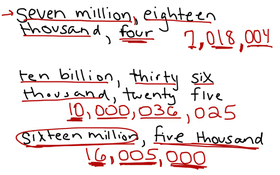 → Seven million, eighteen
thousand, four
7,018,004
ten billion, thirty six
thousand, twenty five
10,000,036,025
Sixteen million, five thousand
16,005,000